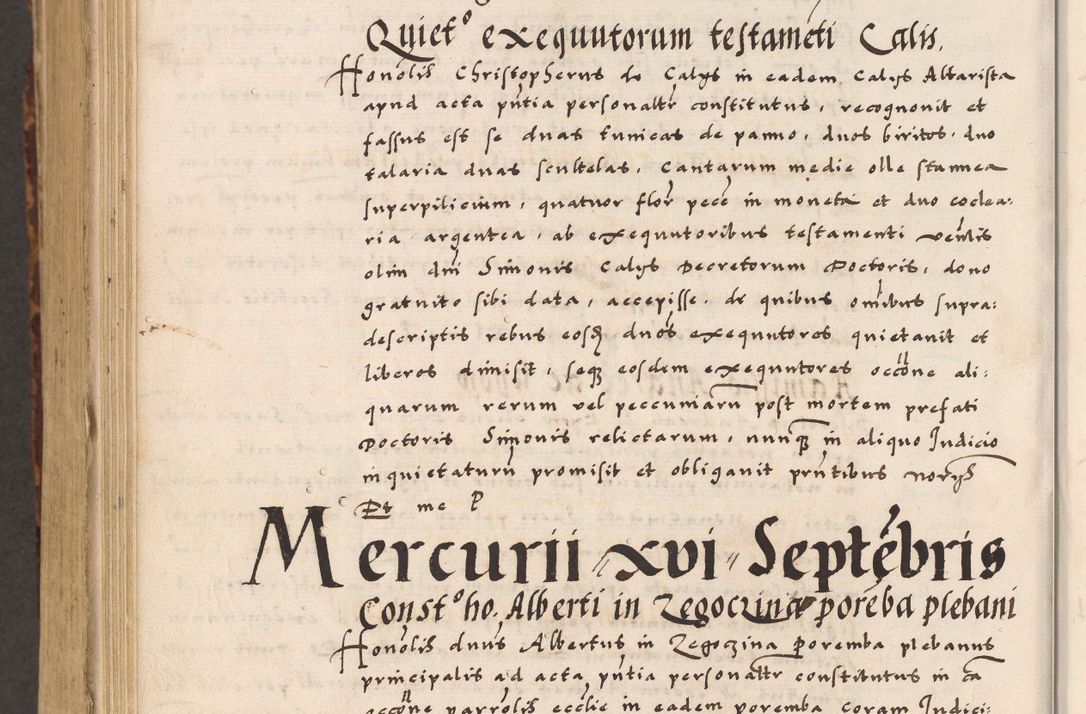 Quiet° exequutorum testameti Calis.
Honolis Christopherus de Calys in eadem Calys Altarista
apud acta pntia personaltr constitutus, recognouit et
fassus est se duas tunicas de panno, duos biritos, duo
talaria duas scultelas, Cantarum medie olle stannea
superpilicium, quatuor flor pece in moneta et duo coclea:
ria argentea, ab exequutoribus testamenti
olim dni Simonis Calys Decretorum Doctoris, dono
gratuito sibi data, accepisse. de quibus omibus supra:
descriptis rebus eosq duos exequutores quietauit et
liberos dimisit, seq eosdem exequutores occone ali:
quarum rerum vel peccuniaru post mortem prefati
Doctoris Simonis relictarum, nunq in aliquo Iudicio
inquietaturu promisit et obligauit pntibus norys
Et me P
Mercurii xvi Septébris
Const° ho. Alberti in Zegoczina poreba plebani
Honolis dnus Albertus in Zegoczina Poremba plebanus
principalis ad acta pntia personaltr constitutus in ca
accone parrolis ecclie in eadem poremba coram Iudici: